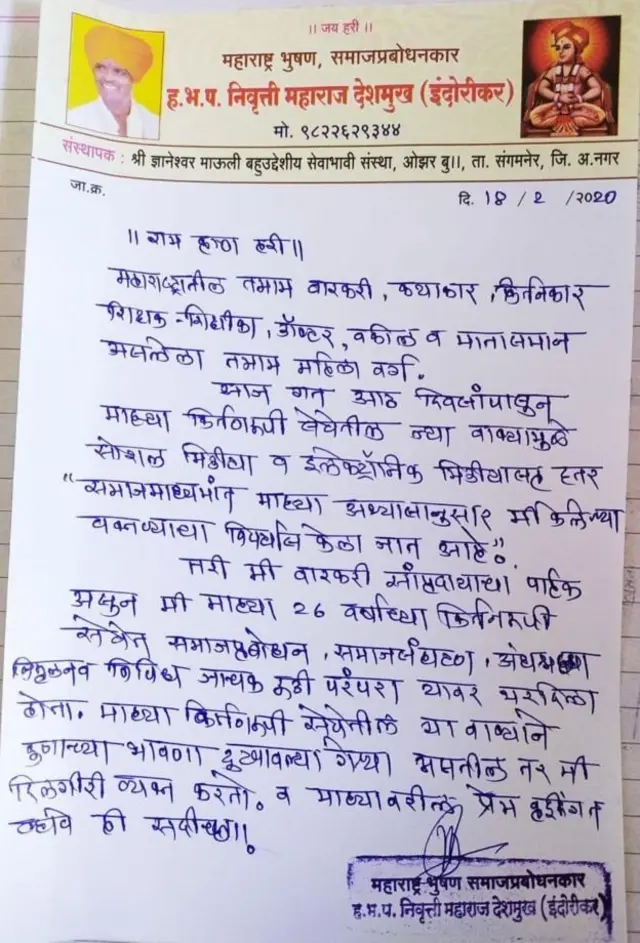 ॥ जय हरी ॥
महाराष्ट्र भुषण, समाजप्रबोधनकार
ह.भ.प. निवृत्ती महाराज देशमुख (इंदोरीकर)
मो. ९८२२६२९३४४
संस्थापक : श्री ज्ञानेश्वर माऊली बहुउद्देशीय सेवाभावी संस्था, ओझर बु॥, ता. संगमनेर, जि. अ.नगर
जा.क्र.
दि. 18 / 2 / २०20
॥ राम कृष्ण हरी ॥
महाराष्ट्रातील तमाम वारकरी, कथाकार, किर्तनकार
शिक्षक-शिक्षीका, डॉक्टर, वकील व मातासमान
असलेला तमाम महिला वर्ग.
आज गत आठ दिवसांपासुन
माझ्या किर्तनरूपी सेवेतील त्या वाक्यामुळे
सोशल मिडीया व इलेक्ट्रॉनिक मिडीयासह इतर
"समाजमाध्यमांत माझ्या अभ्यासानुसार मी केलेल्या
वक्तव्याचा विपर्यास केला जात आहे".
तरी मी वारकरी सांप्रदायाचा पाईक
असुन मी माझ्या 26 वर्षाच्या किर्तनरूपी
सेवेत समाजप्रबोधन, समाजसंघटण, अंधश्रध्दा
निमुलनव विविध जाचक रूढी परंपरा यावर भरदिला
होता. माझ्या किर्तनरूपी सेवेतील या वाक्याने
कुणाच्या भावना दुखावल्या गेल्या असतील तर मी
दिलगीरी व्यक्त करतो. व माझ्यावरील प्रेम वृध्दिंगत
व्हावे ही सदीच्छा॥.
महाराष्ट्र भुषण समाजप्रबोधनकार
ह.भ.प. निवृत्ती महाराज देशमुख (इंदोरीकर)